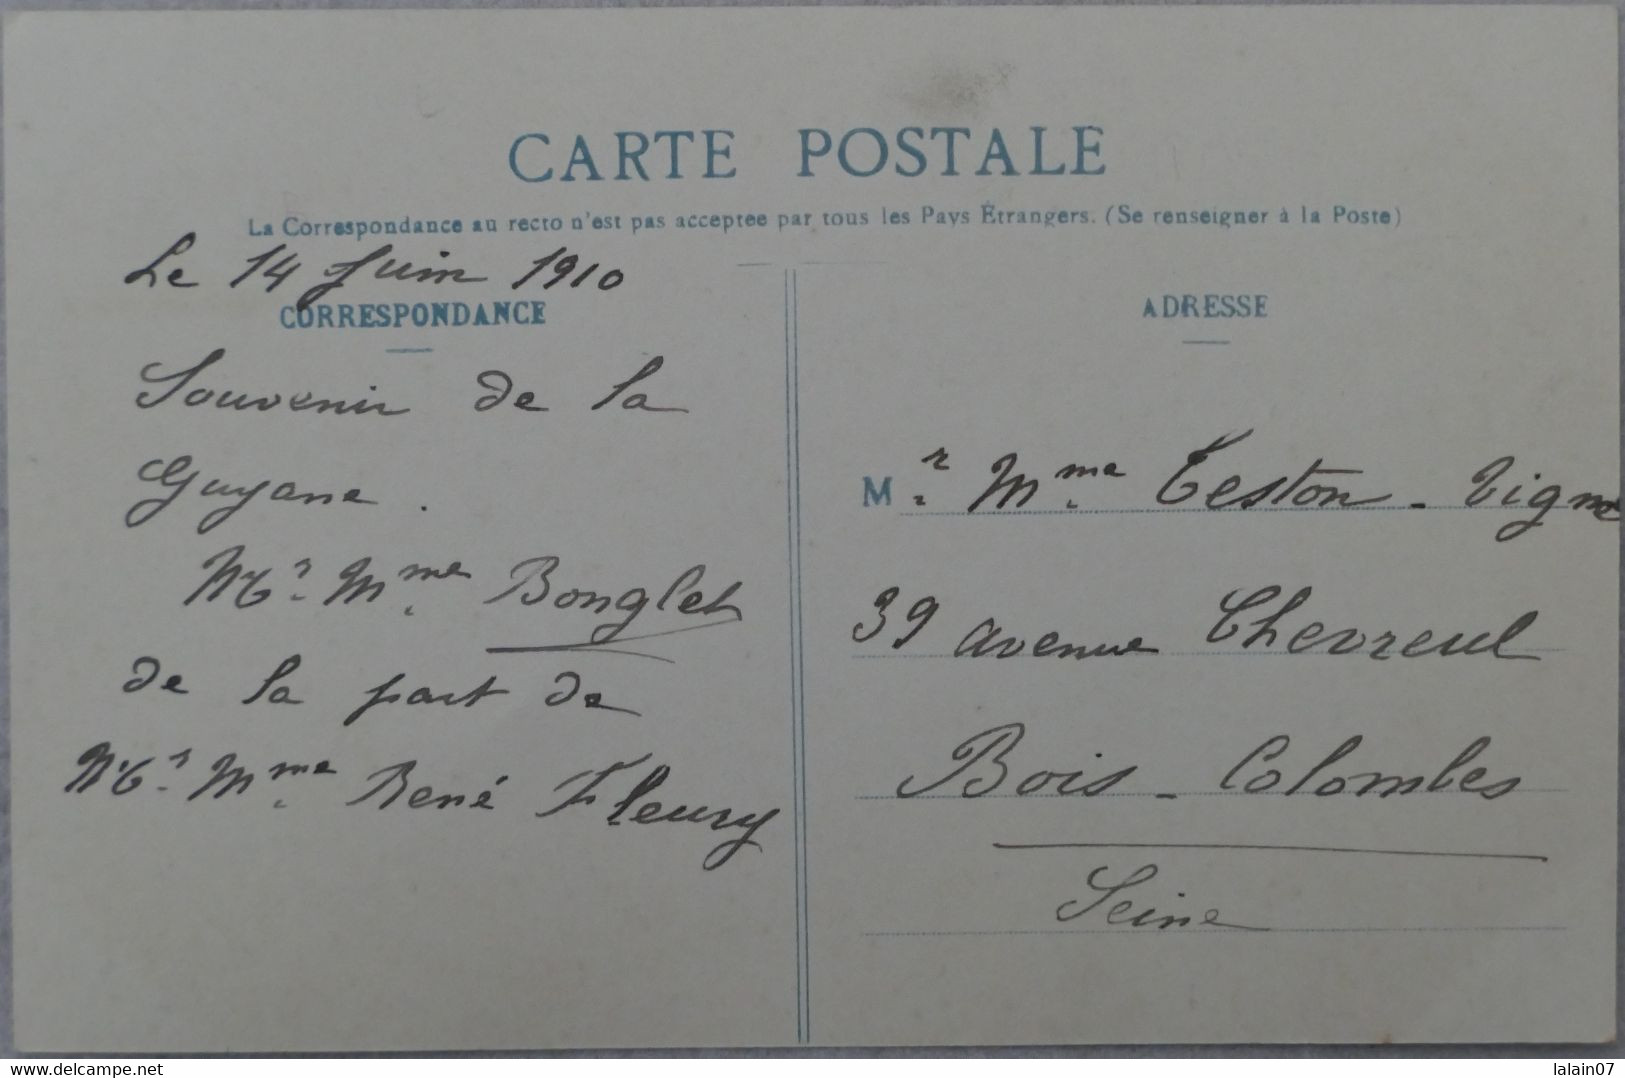 CARTE POSTALE
La Correspondance au recto n'est pas acceptee par tous les Pays Étrangers. (Se renseigner à la Poste)
Le 14 Juin 1910
CORRESPONDANCE
Souvenir de la
Guyane.
Mr. Mme. Bonglet
de la part de
Mr. Mme. René Fleury
ADRESSE
Mr. Mme. Teston - Vigne
39 avenue Chevreul
Bois - Colombes
Seine
www.delcampe.net
lalain07